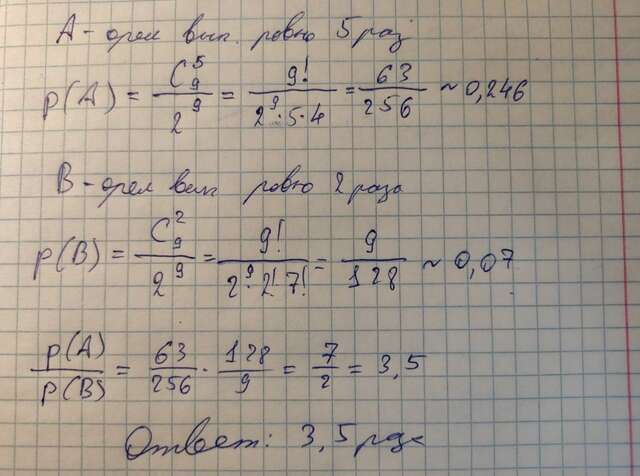 А - орел вып. ровно 5 раз
p(A) = C₉⁵ / 2⁹ = 9! / 2⁹·5·4 = 63 / 256 ~ 0,246
В - орел вып ровно 2 раза
p(B) = C₉² / 2⁹ = 9! / 2⁹·2!7! = 9 / 128 ~ 0,07
p(A) / p(B) = 63 / 256 · 128 / 9 = 7 / 2 = 3,5
Ответ: 3,5 раза